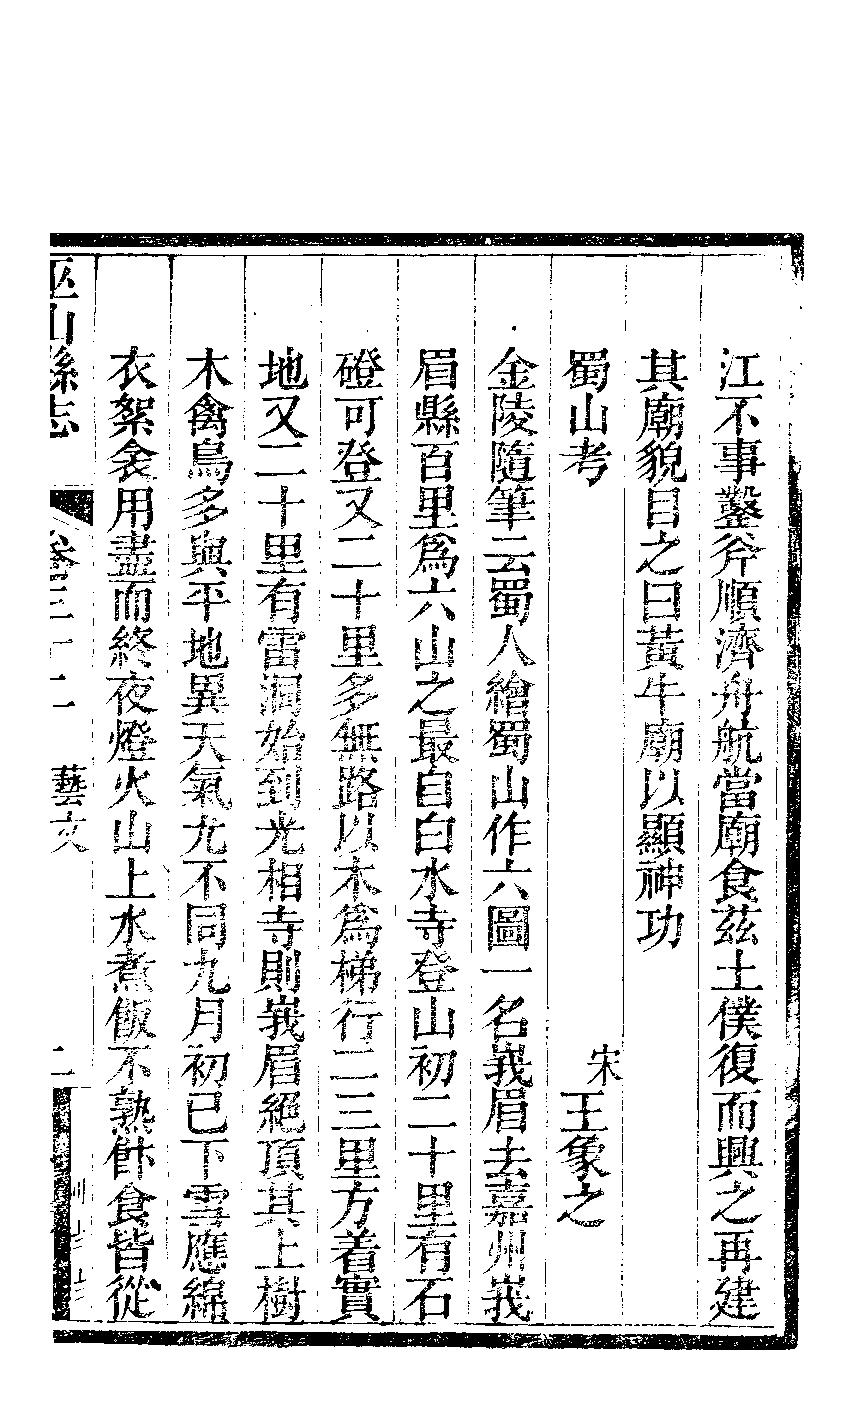 江不事鑿斧順濟舟航當廟食茲土僕復而興之再建
其廟貌目之曰黃牛廟以顯神功
蜀山考
宋王象之
金陵隨筆云蜀人繪蜀山作六圖一名峩眉去嘉州峩
眉縣百里爲六山之最自白水寺登山初二十里有石
磴可登又二十里多無路以木爲梯行二三里方着實
地又二十里有雷洞始到光相寺則峩眉絕頂其上樹
木禽鳥多與平地異天氣尤不同九月初已下雪應綿
衣絮衾用盡而終夜燈火山上水煮飯不熟餅食皆從
巫山縣志
卷三十二 藝文
二